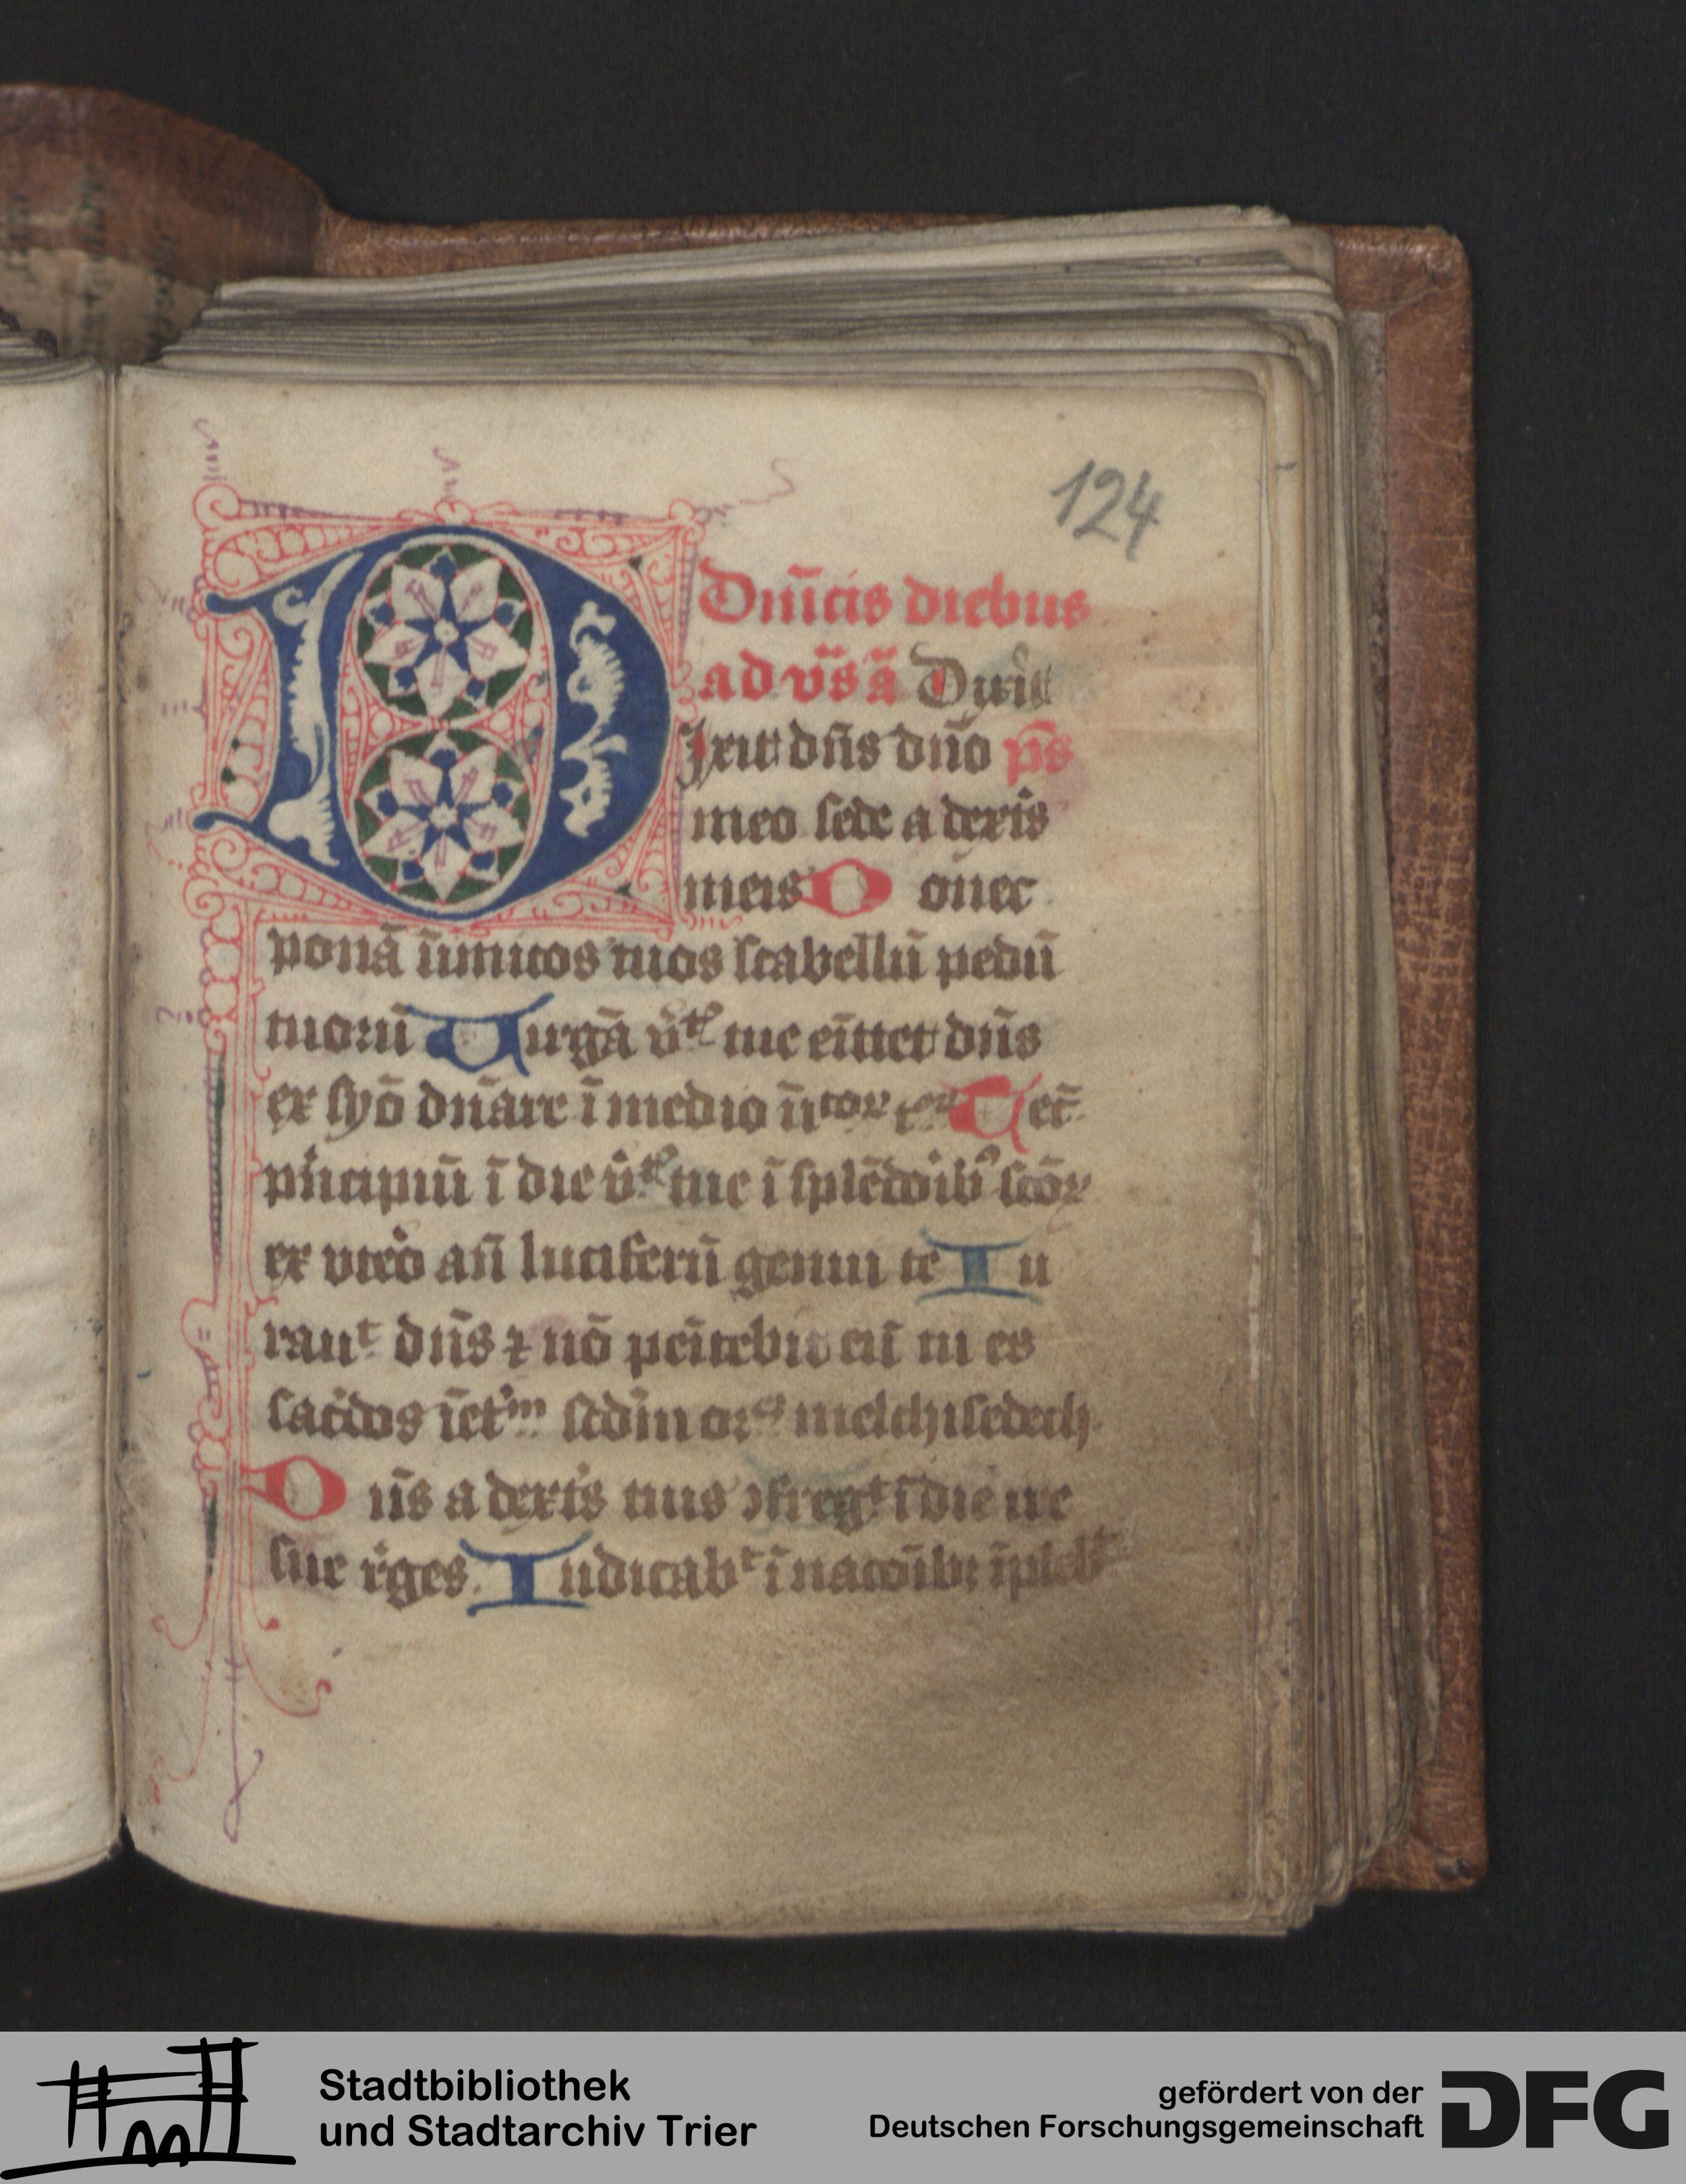 124
Dn̄icis diebus
ad vs̄ā Dixit
D Ixit dn̄s dn̄o ps̄
meo sede a dextˢ
meis D onec
ponā inimicos tuos scabellū pedū
tuoꝝ Uirgā v̄tꝭ tue em̄ittet dn̄s
ex syō dn̄are ī medio in̄icoꝝ tuoꝝ Tec̄
pⁱncipiū ī die v̄tꝭ tue ī splēdoibꝰ scōꝝ
ex vteͦ an̄ luciferū genui te Iu
rauᵗ dn̄s ⁊ nō penitebit eū tu es
sac̄dos īet̄m̄ scd̄m melchisedech
D n̄s a dextˢ tuis ꝯfregᵗ ī die ire
sue r̄ges Iudicabᵗ ī nacōibꝫ īplebᵗ
Stadtbibliothek
und Stadtarchiv Trier
gefördert von der
Deutschen Forschungsgemeinschaft
DFG